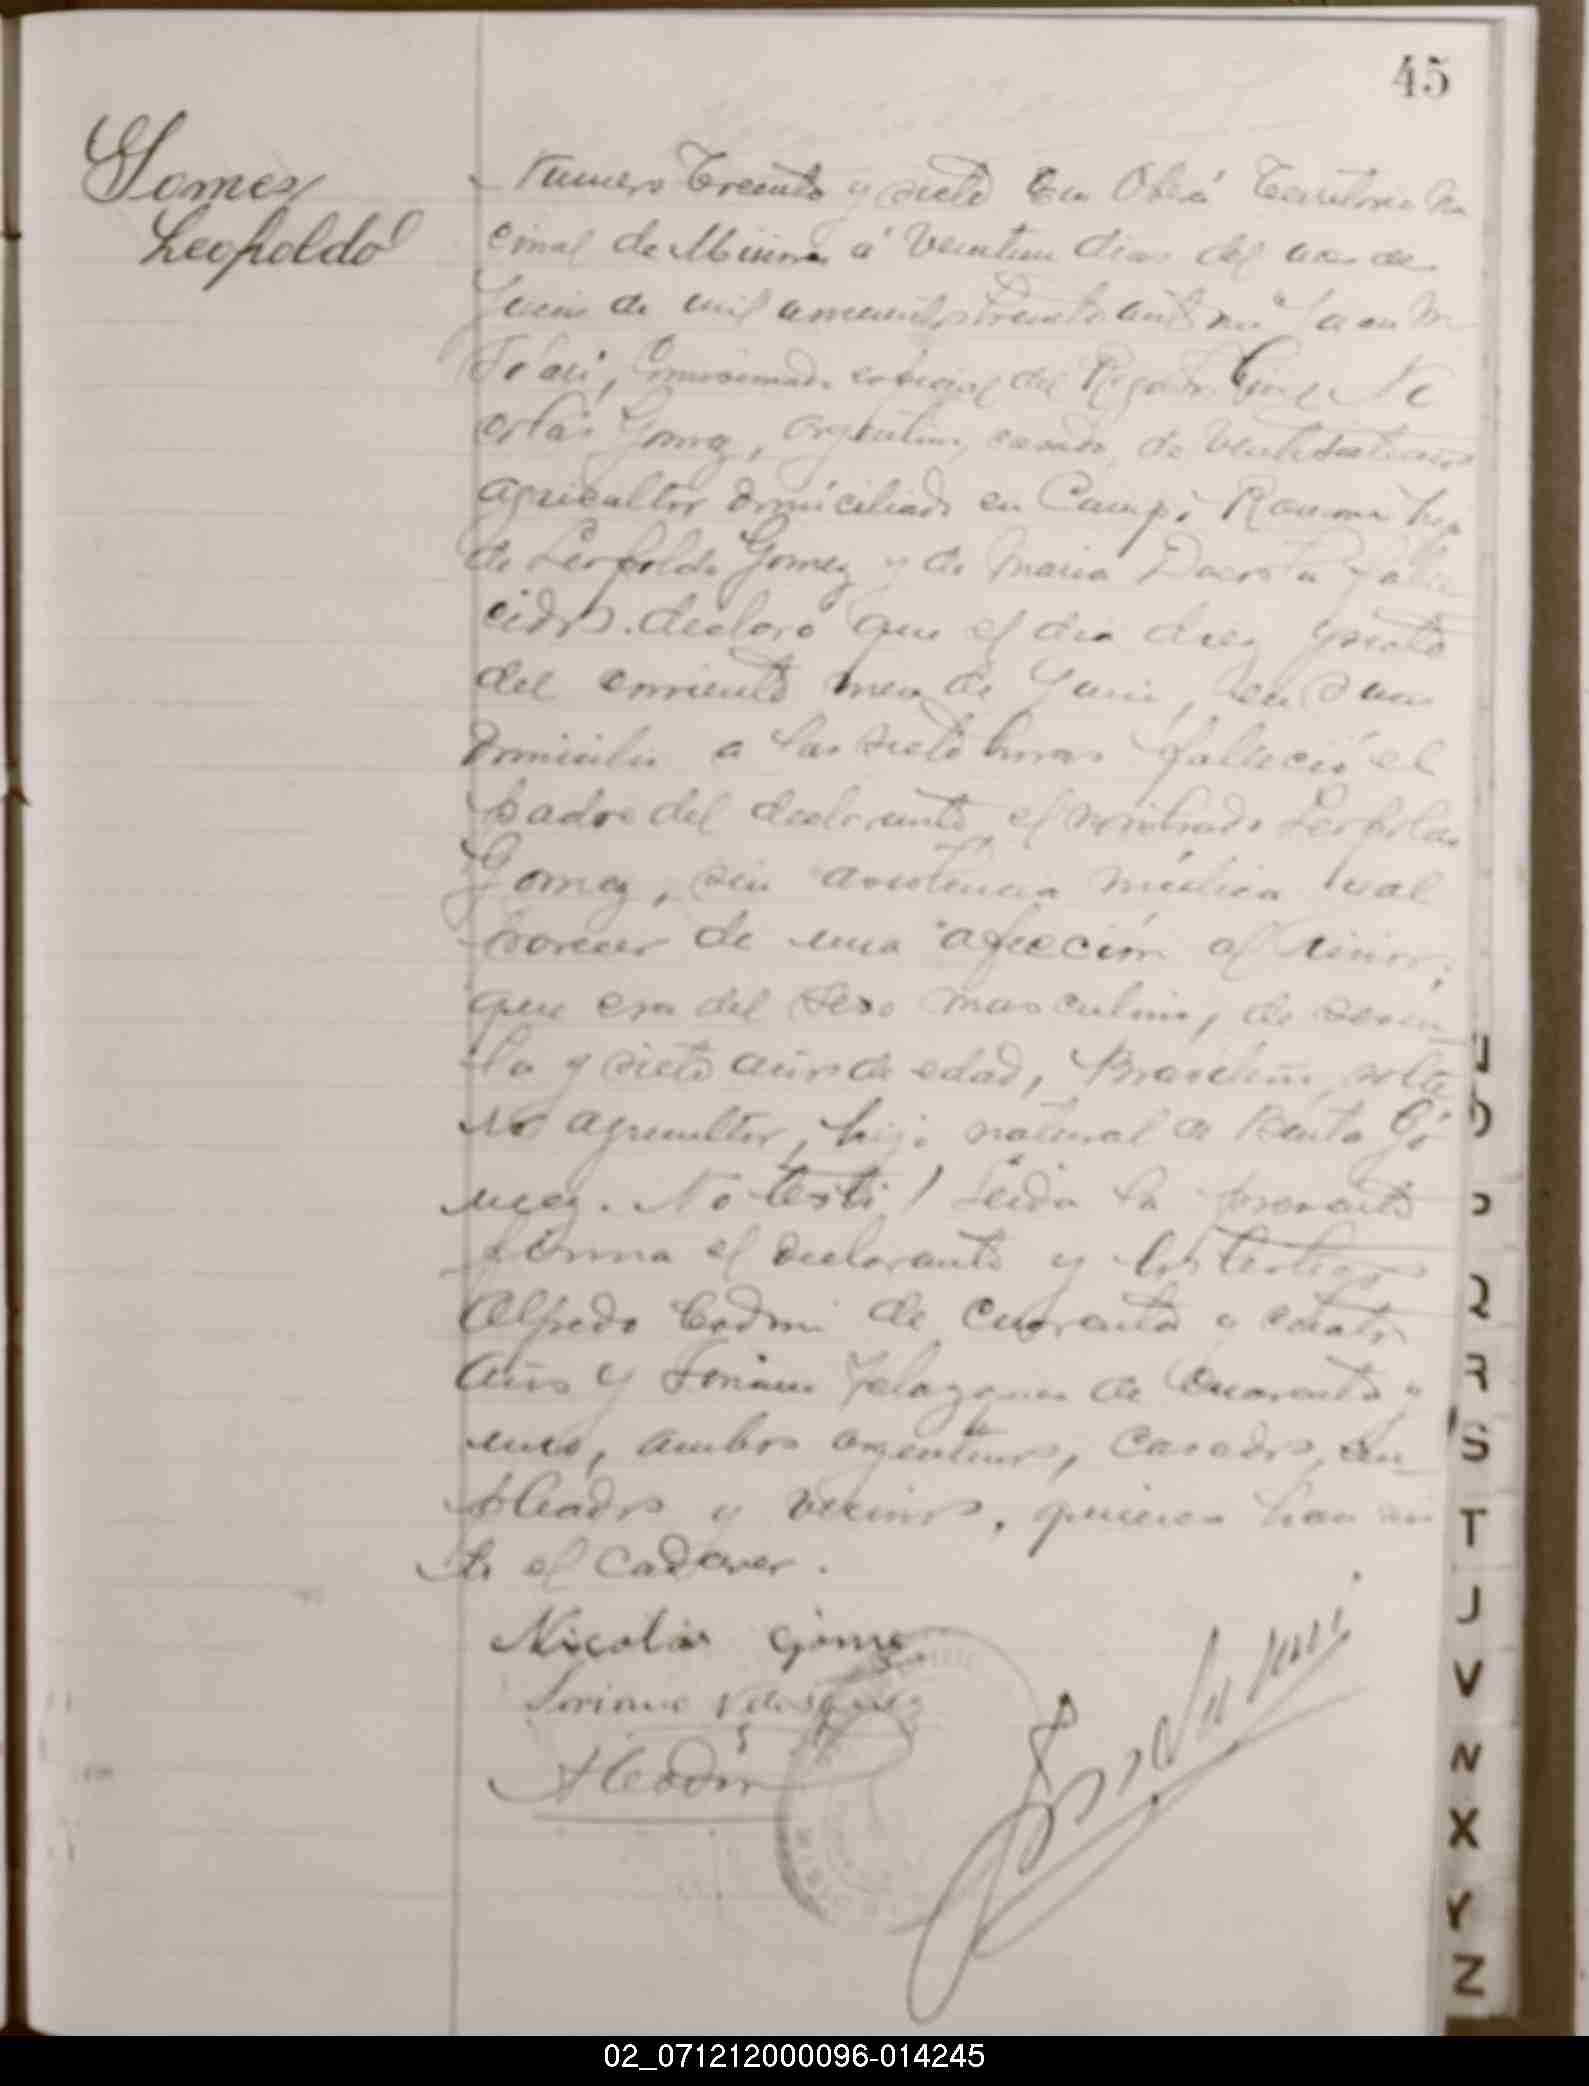 45
Gomez
Leopoldo
Numero Treinta y siete En Oberá Territorio Na
cional de Misiones á veintiun dias del mes de
Junio de mil novecientos treinta ante mi Juan
Comisionado especial del Registro Civil Ni
colás Gomez, argentino, casado, de años
agricultor domiciliado en Campo Ramon hijo
de Leopoldo Gomez y de Maria Dacosta falle
cidos. declaró que el dia diez y siete
del corriente mes de Junio, en su
domicilio a las siete horas falleció el
padre del declarante el nombrado Leopoldo
Gomez, sin asistencia médica y al
parecer de una afección al riñon,
que era del sexo masculino, de
ta y siete años de edad, Brasileño, solte
ro agricultor, hijo natural de Benta Gó
mez. No testó. Leida la presente
firma el declarante y los testigos
Alfredo de cuarenta y cuatro
años y Soriano Velazquez de cuarenta y
uno, ambos argentinos, casados, em
pleados y vecinos, quienes han vis
to el cadaver.
Nicolás Gómez
Soriano Velasquez
02_071212000096-014245